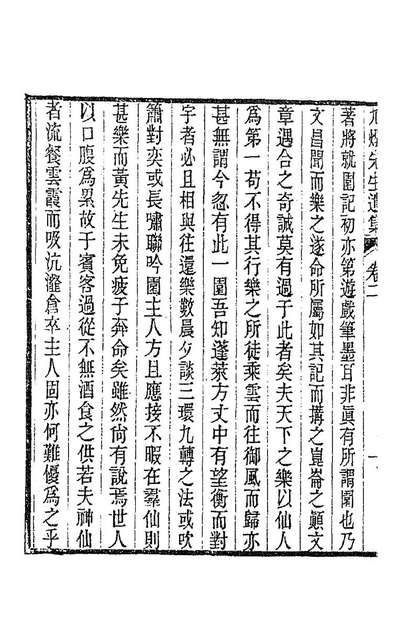 先生遺集 卷二 一
著將就園記初亦第遊戲筆墨耳非眞有所謂園也乃
文昌聞而樂之遂命所屬如其記而搆之崑崙之顚文
章遇合之奇誠莫有過于此者矣夫天下之樂以仙人
爲第一苟不得其行樂之所徒乘雲而往御風而歸亦
甚無謂今忽有此一園吾知蓬萊方丈中有望衡而對
宇者必且相與往還樂數晨夕談三環九轉之法或吹
簫對奕或長嘯聯吟園主人方且應接不暇在羣仙則
甚樂而黃先生未免疲于奔命矣雖然尙有說焉世人
以口腹爲累故于賓客過從不無酒食之供若夫神仙
者流餐雲霞而吸沆瀣倉卒主人固亦何難優爲之乎